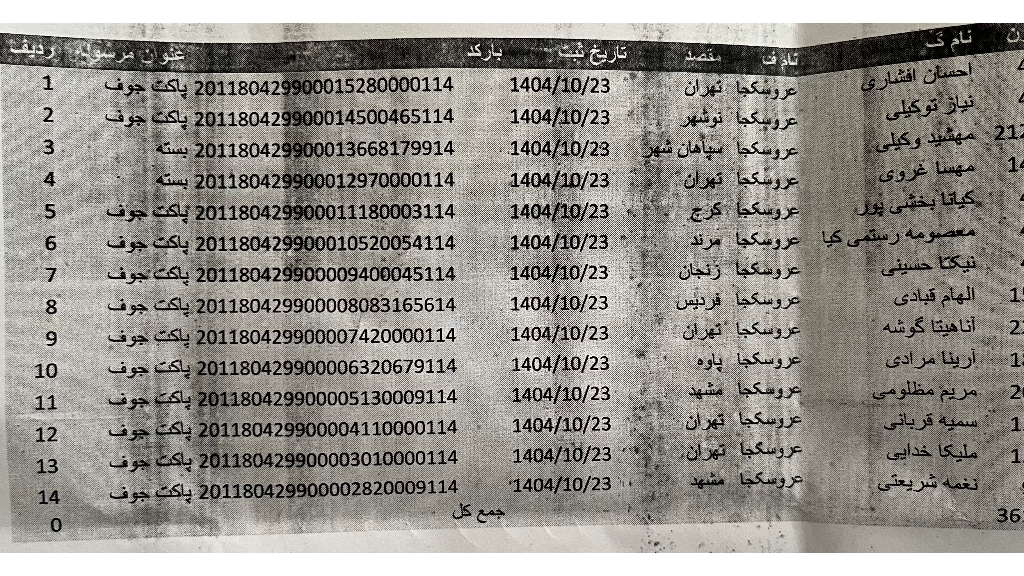 ردیف عنوان مرسوله بارکد تاریخ ثبت مقصد نام ف نام گ
1 پاکت جوف 201180429900015280000114 1404/10/23 تهران عروسکجا احسان افشاری
2 پاکت جوف 201180429900014500465114 1404/10/23 نوشهر عروسکجا نیاز توکیلی
3 بسته 201180429900013668179914 1404/10/23 سپاهان شهر عروسکجا مهشید وکیلی
4 بسته 201180429900012970000114 1404/10/23 تهران عروسکجا مهسا غروی
5 پاکت جوف 201180429900011180003114 1404/10/23 کرج عروسکجا کیانا بخشی پور
6 پاکت جوف 201180429900010520054114 1404/10/23 مرند عروسکجا معصومه رستمی کیا
7 پاکت جوف 201180429900009400045114 1404/10/23 زنجان عروسکجا نیکتا حسینی
8 پاکت جوف 201180429900008083165614 1404/10/23 فردیس عروسکجا الهام قبادی
9 پاکت جوف 201180429900007420000114 1404/10/23 تهران عروسکجا آناهیتا گوشه
10 پاکت جوف 201180429900006320679114 1404/10/23 پاوه عروسکجا آرینا مرادی
11 پاکت جوف 201180429900005130009114 1404/10/23 مشهد عروسکجا مریم مظلومی
12 پاکت جوف 201180429900004110000114 1404/10/23 تهران عروسکجا سمیه قربانی
13 پاکت جوف 201180429900003010000114 1404/10/23 تهران عروسکجا ملیکا خدایی
14 پاکت جوف 201180429900002820009114 1404/10/23 مشهد عروسکجا نغمه شریعتی
0 جمع کل